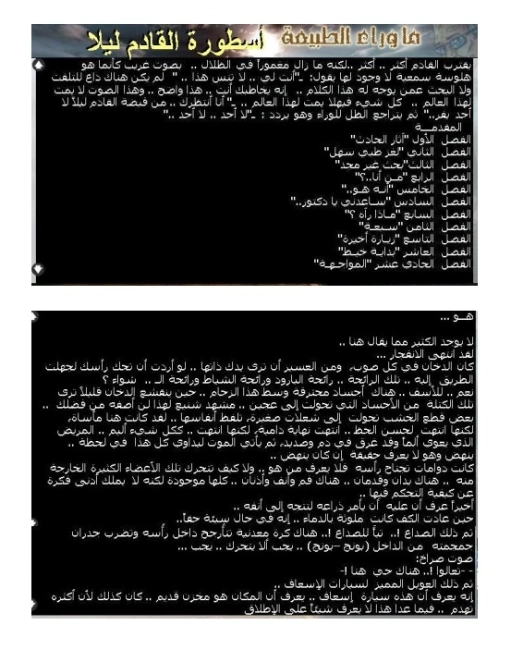 ما وراء الطبيعة أسطورة القادم ليلا
يقترب القادم أكثر .. أكثر ..لكنه ما زال مغموراً في الظلال .. بصوت غريب كأنما هو
هلوسة سمعية لا وجود لها يقول: ـ"أنت لي .. لا تنس هذا .. " لم يكن هناك داع للتلفت
ولا البحث عمن يوجه له هذا الكلام .. إنه يخاطبك أنت .. هذا واضح .. وهذا الصوت لا يمت
لهذا العالم .. كل شيء فيهلا يمت لهذا العالم .. ـ" أنا أنتظرك .. من قبضة القادم ليلاً لا
أحد يفر.." ثم يتراجع الظل للوراء وهو يردد : ـ"لا أحد .. لا أحد .."
المقدمـــة
الفصل الأول "آثار الحادث"
الفصل الثاني "لغز طبي سهل"
الفصل الثالث"بحث غير مجد"
الفصل الرابع "مـن أنا..؟"
الفصل الخامس "أنـه هـو.."
الفصل السادس "سـاعدني يا دكتور.."
الفصل السابع "مـاذا رآه ؟"
الفصل الثامن "سـبعة"
الفصل التاسع "زيـارة أخيرة"
الفصل العاشر "بدايـة خيـط"
الفصل الحادي عشر "المواجـهـة"
هــو ...
لا يوجد الكثير مما يقال هنا ..
لقد انتهى الانفجار ...
كان الدخان في كل صوب، ومن العسير أن ترى يدك ذاتها .. لو أردت أن تحك رأسك لجهلت
الطريق إليه .. تلك الرائحة .. رائحة البارود ورائحة الشياط ورائحة الـ .. شواء ؟
نعم .. للأسف .. هناك أجساد محترقة وسط هذا الزحام .. حين ينقشع الدخان قليلاً ترى
تلك الكتلة من الأجساد التي تحولت إلى عجين .. مشهد شنيع لهذا لن أصفه من فضلك ..
بعض قطع الخشب تحولت إلى شعلات صغيرة، تلفظ أنفاسها .. لقد كانت هنا مأساة،
لكنها انتهت لحسن الحظ .. انتهت نهاية دامية، لكنها انتهت .. ككل شيء أليم .. المريض
الذي يعوي ألماً وقد غرق في دم وصديد، ثم يأتي الموت ليداوي كل هذا في لحظة ..
ينهض وهو لا يعرف حقيقة إن كان ينهض ..
كانت دوامات تجتاح رأسه فلا يعرف من هو .. ولا كيف تتحرك تلك الأعضاء الكثيرة الخارجة
منه .. هناك يدان وقدمان .. هناك فم وأنف وأذنان .. كلها موجودة لكنه لا يملك أدنى فكرة
عن كيفية التحكم فيها ..
أخيراً عرف أن عليه أن يأمر ذراعه لتتجه إلى أنفه ..
حين عادت الكف كانت ملوثة بالدماء .. إنه في حال سيئة حقاً..
ثم ذلك الصداع !.. تباً للصداع !.. هناك كرة معدنية تتأرجح داخل رأسه وتضرب جدران
جمجمته من الداخل (بونج –بونج) .. يجب ألا يتحرك .. يجب ...
صوت صراخ:
- -تعالوا !.. هناك حي هنا !-
ثم ذلك العويل المميز لسيارات الإسعاف ..
إنه يعرف أن هذه سيارة إسعاف .. يعرف أن المكان هو مخزن قديم .. كان كذلك لأن أكثره
تهدم .. فيما عدا هذا لا يعرف شيئاً على الإطلاق